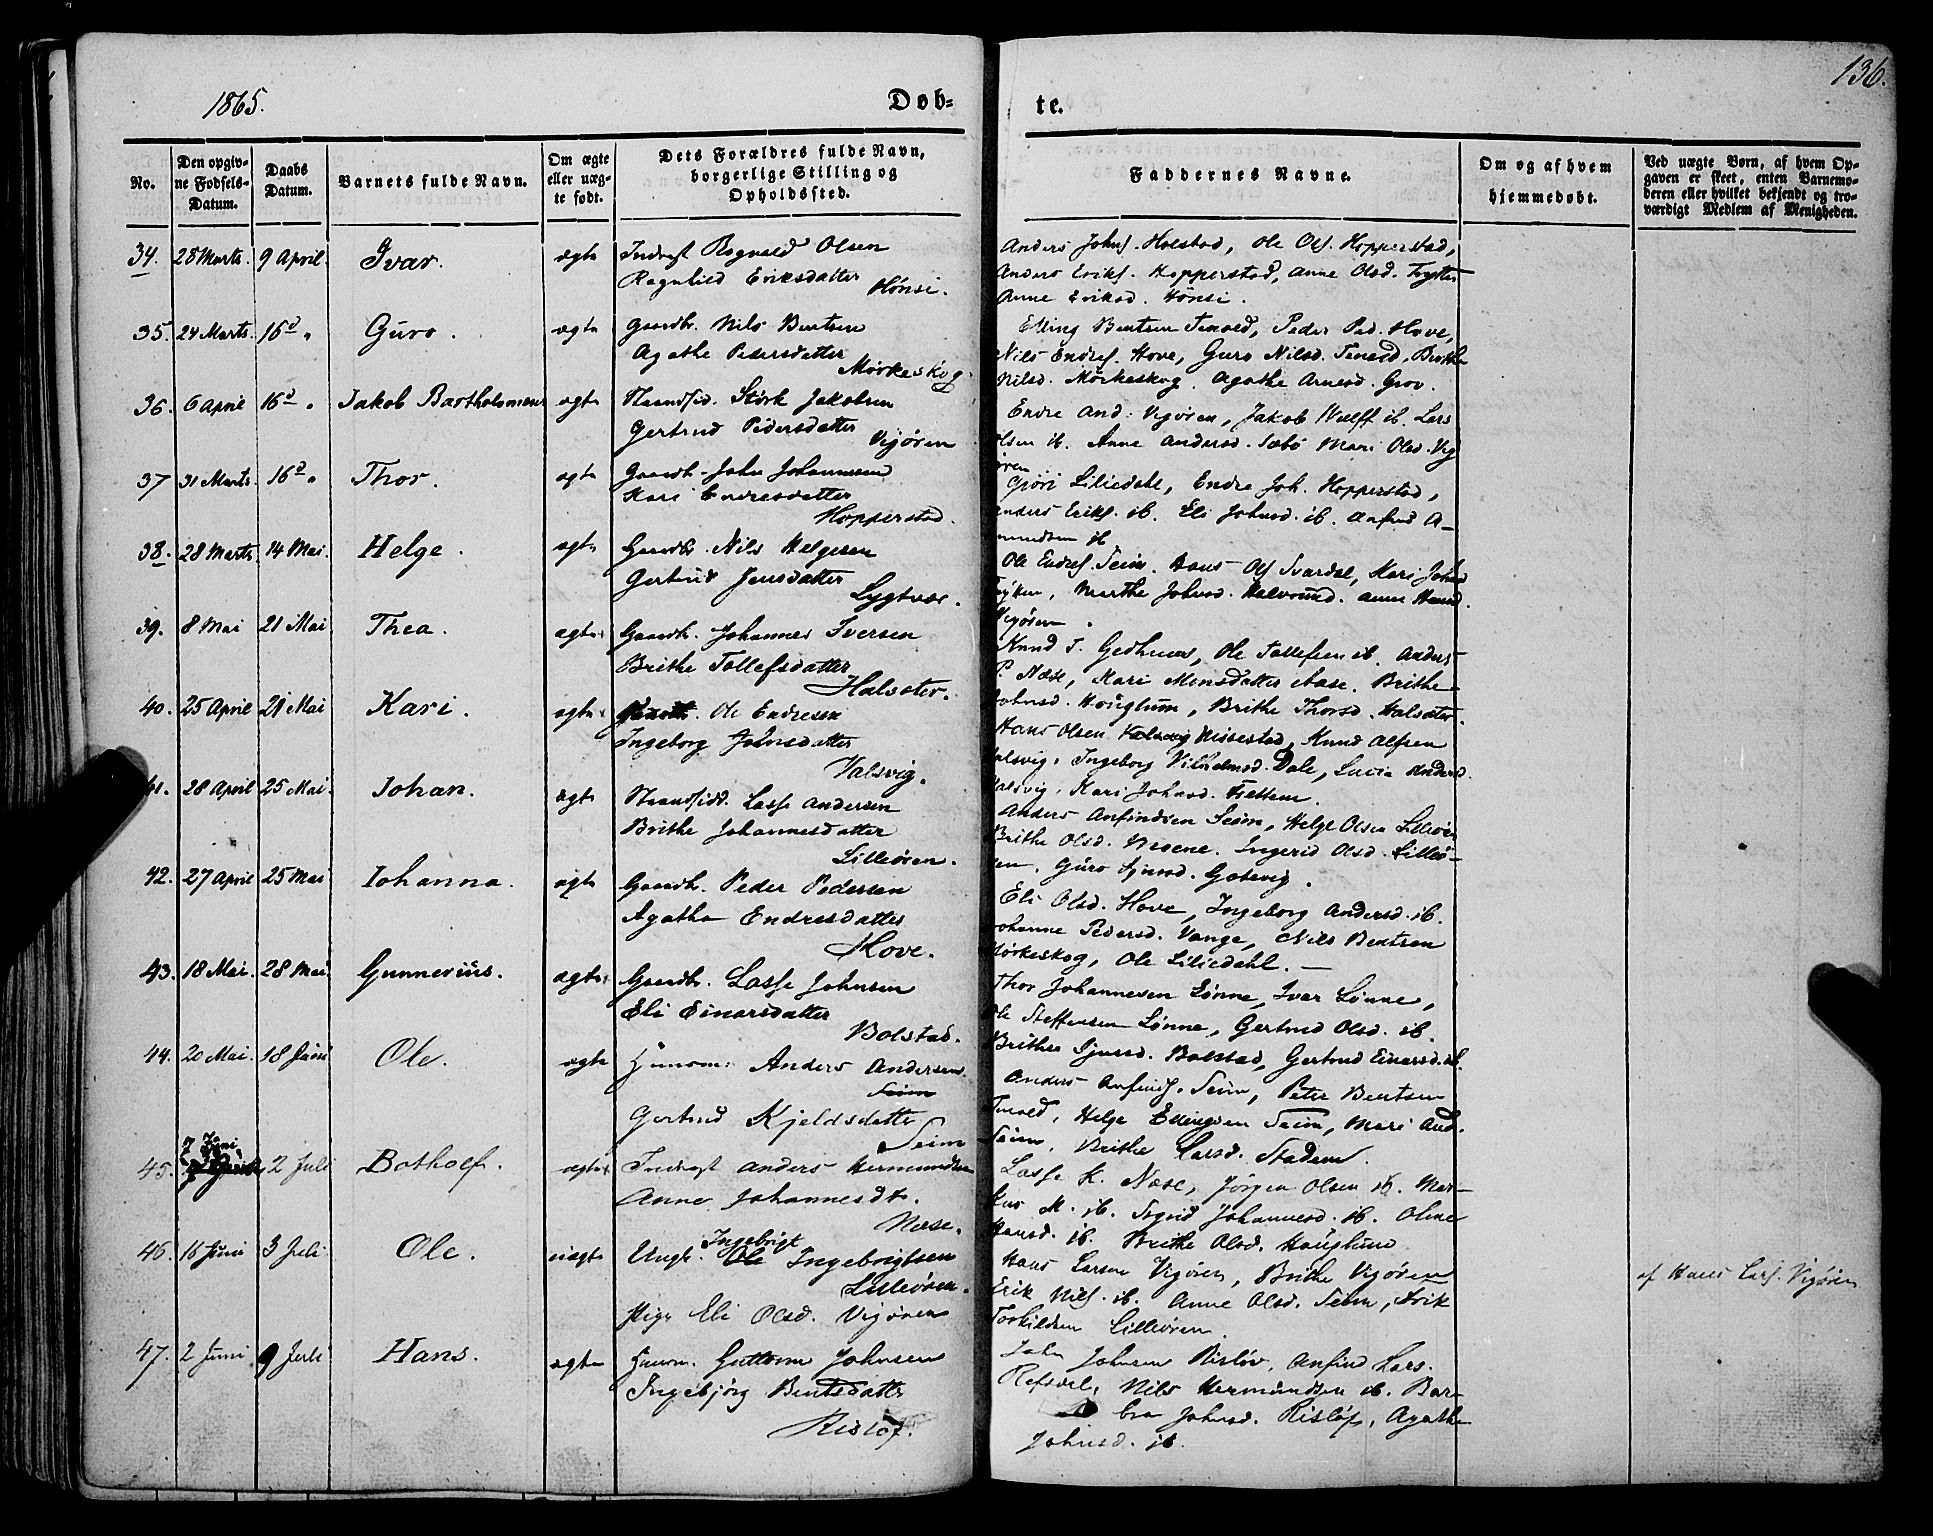 1865.
Døb-
te.
136.
No.
Den opgiv-
ne Fødsels-
Datum.
Daabs
Datum.
Barnets fulde Navn.
Om ægte
eller uæg-
te født.
Dets Forældres fulde Navn,
borgerlige Stilling og
Opholdssted.
Faddernes Navne.
Om og af hvem
hjemmedøbt.
Ved uægte Børn, af hvem Op-
gaven er skeet, enten Barnemo-
deren eller hvilket bekjendt og tro-
værdigt Medlem af Menigheden.
34. 28 Marts. 9 April. Ivar. ægte Indrest Rognald Olsen
Ragnhild Eriksdatter
Hønsi.
Anders Johns. Holstad, Ole Ols. Hopperstad,
Anders Eriks. Hopperstad, Anne Olsd.
Anne Eriksd. Hønsi.
35. 24 Marts. 16d " Guro. ægte Gaardbr. Nils Bentsen
Agathe Pedersdatter
Mørkeskog.
Elling Bentsen Tenold, Peder Ped. Hove,
Nils Endres. Hove, Guro Nilsd. Tenold, Brithe
Nilsd. Mørkeskog. Agathe Arnesd. Grov.
36. 6 April 16d " Jakob Bartholomeus ægte Strandsid. Størk Jakobsen
Gertrud Pedersdatter
Vigøren
Endre And. Vigøren, Jakob Wulff ib. Lars
Olsen ib. Anne Andersd. Sæbø Mari Olsd. Vig
øren
37 31 Marts. 16d " Thor. ægte Gaardb. John Johannesen
Kari Endresdatter
Hopperstad.
Gjøri Liliedahl, Endre Joh. Hopperstad,
Anders Eriks. ib. Eli Johnsd. ib. Anfind A-
mundsen ib
38. 28 Marts. 14 Mai. Helge. ægte Gaardbr. Nils Helgesen
Gertrud Jensdatter
Lygtvær.
Ole Endres. Seim. Hans Ols Svardal, Kari Johnsd
Marthe Johnsd. Halvrund. Anne Hansd.
Vigøren.
39. 8 Mai 21 Mai Thea. ægte Gaardb. Johannes Iversen
Brithe Tollefsdatter
Halsæter.
Knud T. Ole Tollefsen ib. Anders
P. Næse, Kari Monsdatter Aase. Brithe
Johnsd. Hauglum, Brithe Thorsd. Halsæter.
40. 25 April 21 Mai Kari. ægte Gaardb. Ole Endresen
Ingeborg Johnsdatter
Valsvig.
Hans Olsen Nissestad, Knud Alfsen
Valsvig. Ingeborg Vilhelmsd. Dale, Lucia Andersd.
Valsvig. Kari Johnsd. Fættem.
41. 28 April 25 Mai. Johan. ægte Strandsidd. Lasse Andersen
Brithe Johannesdatter
Lilleøren.
Anders Anfindsen Seim, Helge Olsen Lilleøren
Brithe Olsd. Ingerid Olsd. Lilleø-
ren. Guro Sjursd. Gotevig.
42. 27 April 25 Mai Johanna. ægte Gaardb. Peder Pedersen
Agatha Endresdatter
Hove.
Eli Olsd. Hove, Ingeborg Andersd. ib.
Johanne Pedersd. Vange, Nils Bentsen
Mørkeskog, Ole Liliedahl. —
43. 18 Mai. 28 Mai Gunnerius. ægte Gaardb. Lasse Johnsen
Eli Einarsdatter
Bolstad.
Thor Johannesen Lønne, Ivar Lønne,
Ole Steffensen Lønne, Gertrud Olsd. ib.
Brithe Sjursd. Bolstad, Gertrud Einarsd. ib.
44. 20 Mai. 18 Juni Ole. ægte Huusm. Anders Andersen
Seim
Gertrud Kjeldsdatter
Seim
Anders Anfinds. Seim, Peter Bentsen
Tenold, Helge Ellingsen Seim, Mari And.
Seim, Brithe Larsd. Stadem.
45. 7 Juni 2 Juli Botholf. ægte Indrest Anders Hermundsen
Anne Johannesdt.
Næse.
Lasse K. Næse, Jørgen Olsen ib. Mar-
kus M. ib. Sigrid Johannesd. ib. Oline
Hansd. ib. Brithe Olsd. Hauglum
46. 16 Juni 3 Juli Ole. uægte Ungk. Ingebrigt Ole Ingebrigtsen
Lilleøren.
Pige Eli Olsd. Vigøren
Hans Larsen Vigøren, Brithe Vigøren
Erik Nils. ib. Anne Olsd. Seim, Erik
Torkildsen Lilleøren.
af Hans Lars. Vigøren
47. 2 Juni 9 Juli Hans. ægte Huusm. Guttorm Johnsen
Ingebjørg Bentsdatter
Risløf.
John Johnsen Risløv, Anfind Lars.
Refsdal, Nils Hermundsen ib. Bar-
bra Johnsd. Risløf, Agathe
Johnsd. ib.